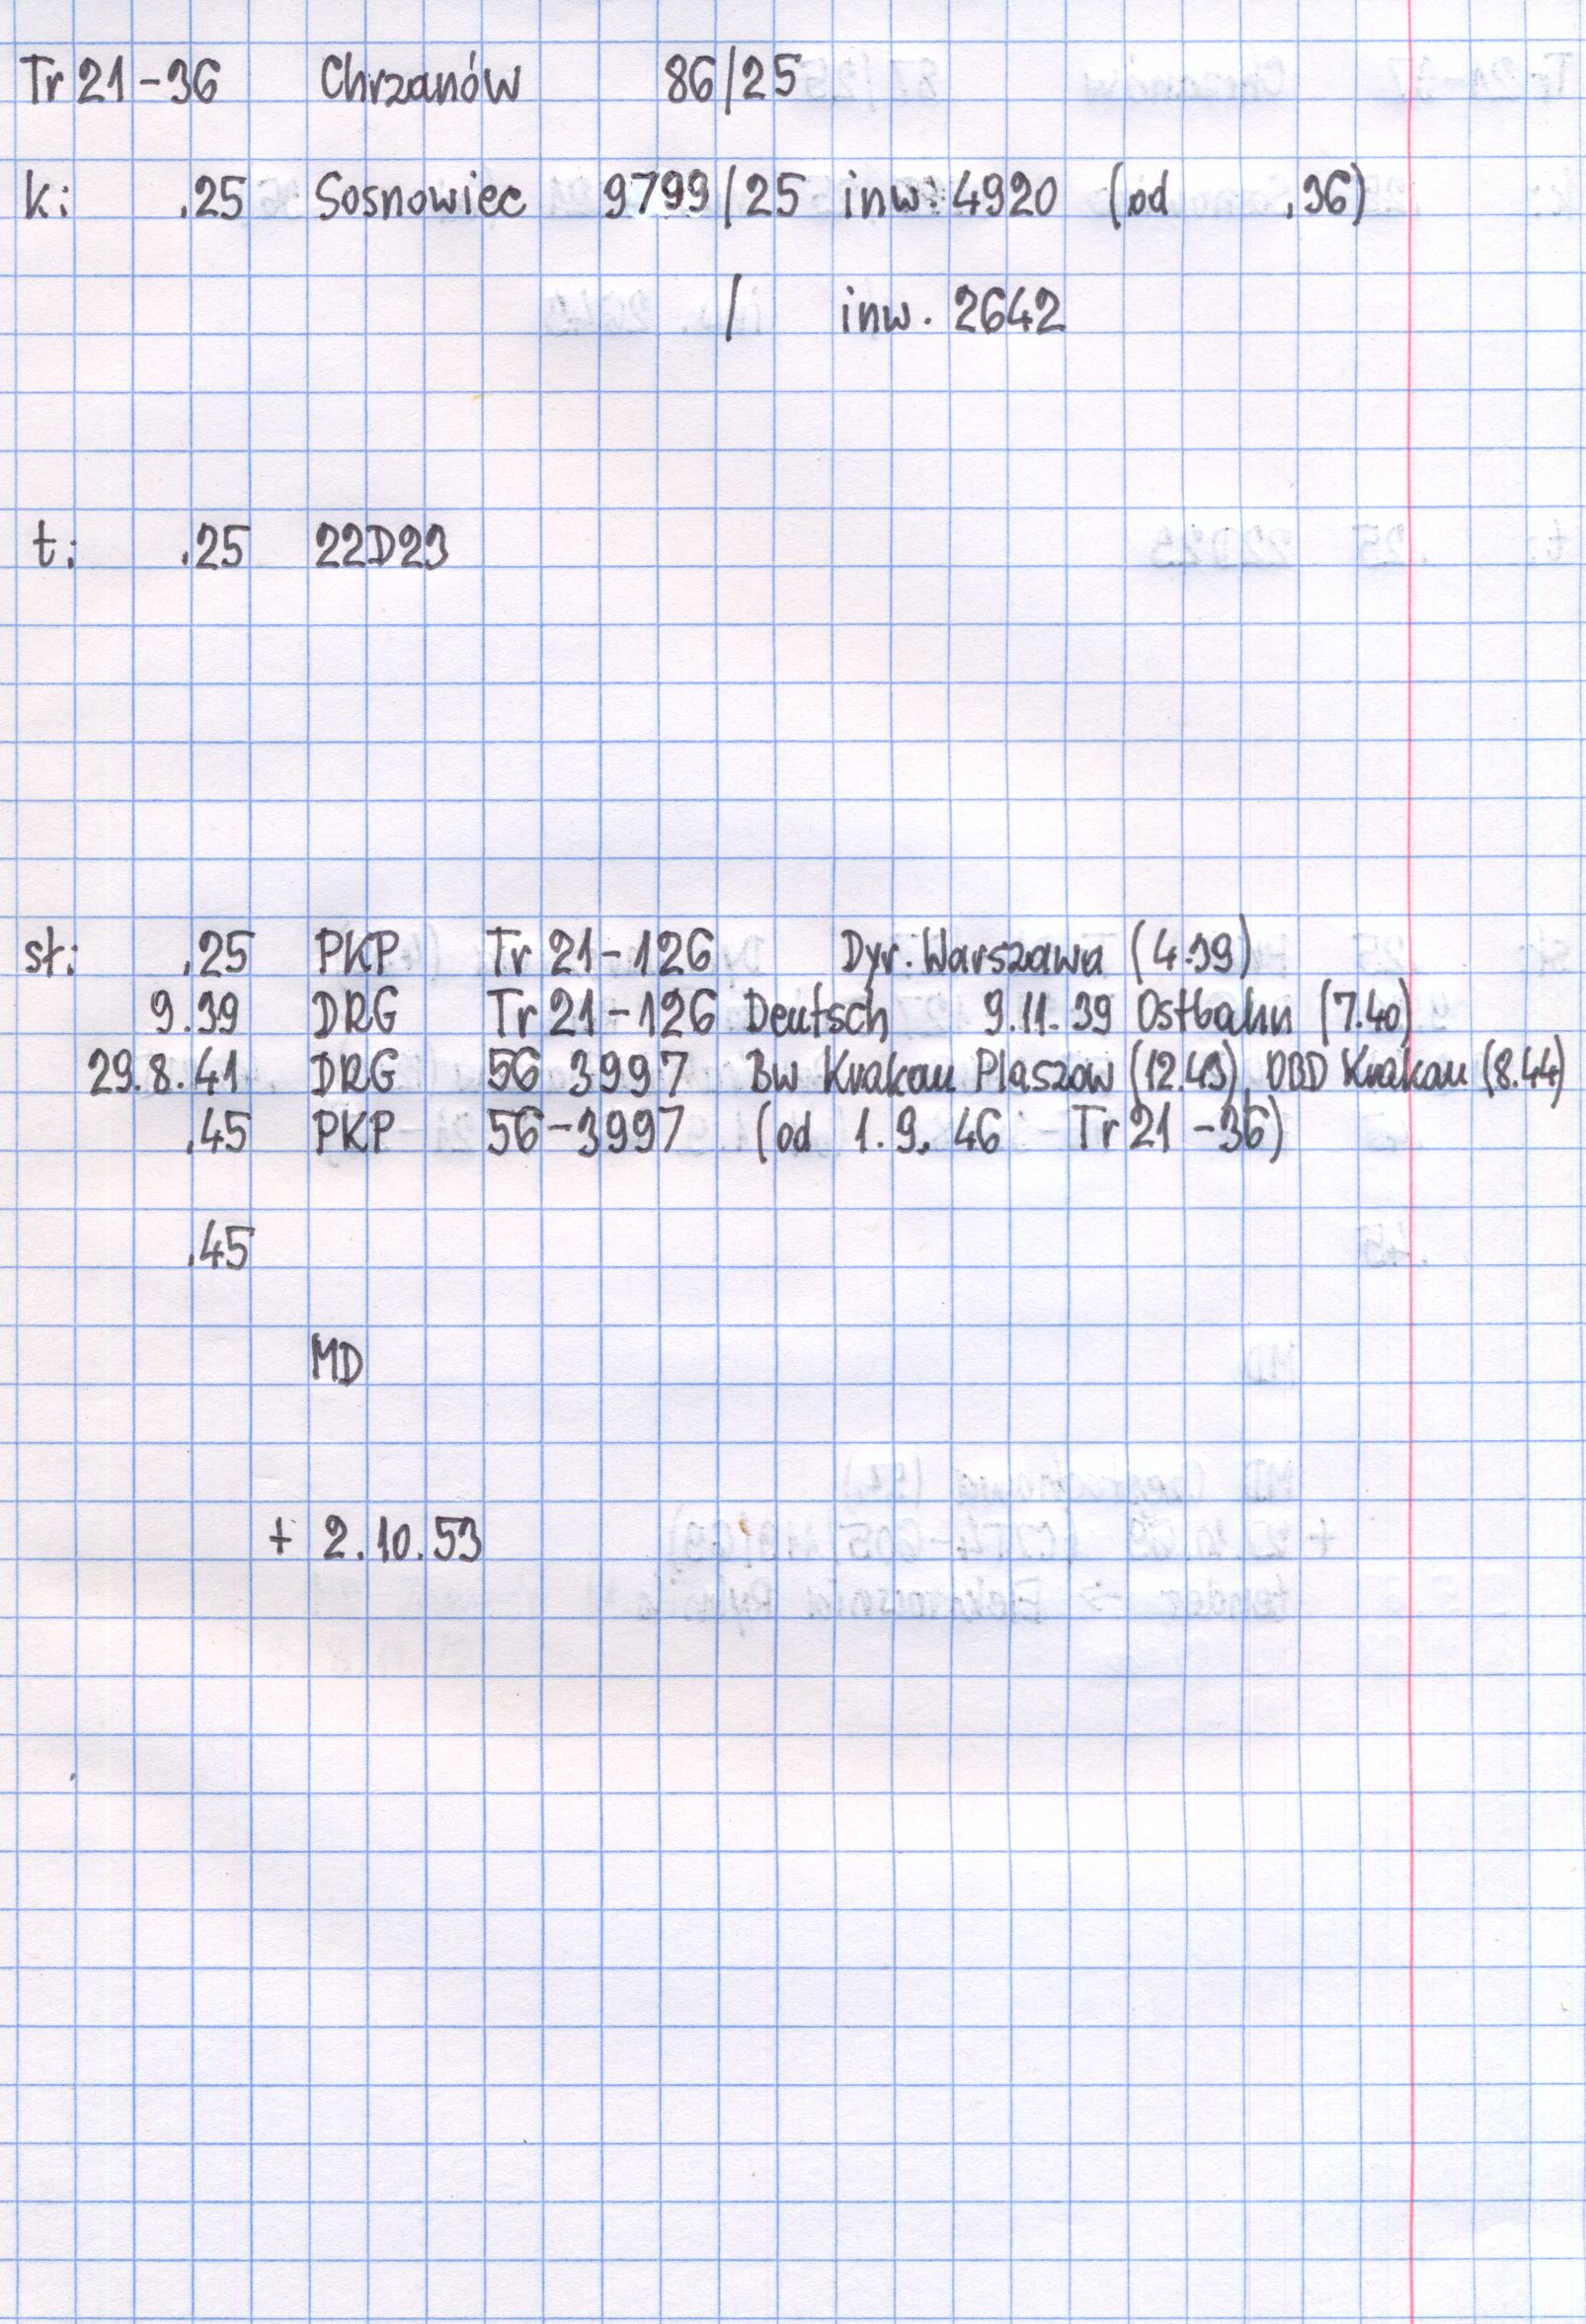 Tr 21-36 Chrzanów 86/25
k: .25 Sosnowiec 9799/25 inw: 4920 (od .36)
/ inw. 2642
t: .25 22D23
st: .25 PKP Tr 21-126 Dyr. Warszawa (4.39)
9.39 DRG Tr 21-126 Deutsch 9.11.39 Ostbahn (7.40)
29.8.41 DRG 56 3997 Bw Krakau Plaszow (12.43), OBD Krakau (8.44)
.45 PKP 56-3997 (od 1.9.46 Tr 21-36)
.45
MD
+ 2.10.53